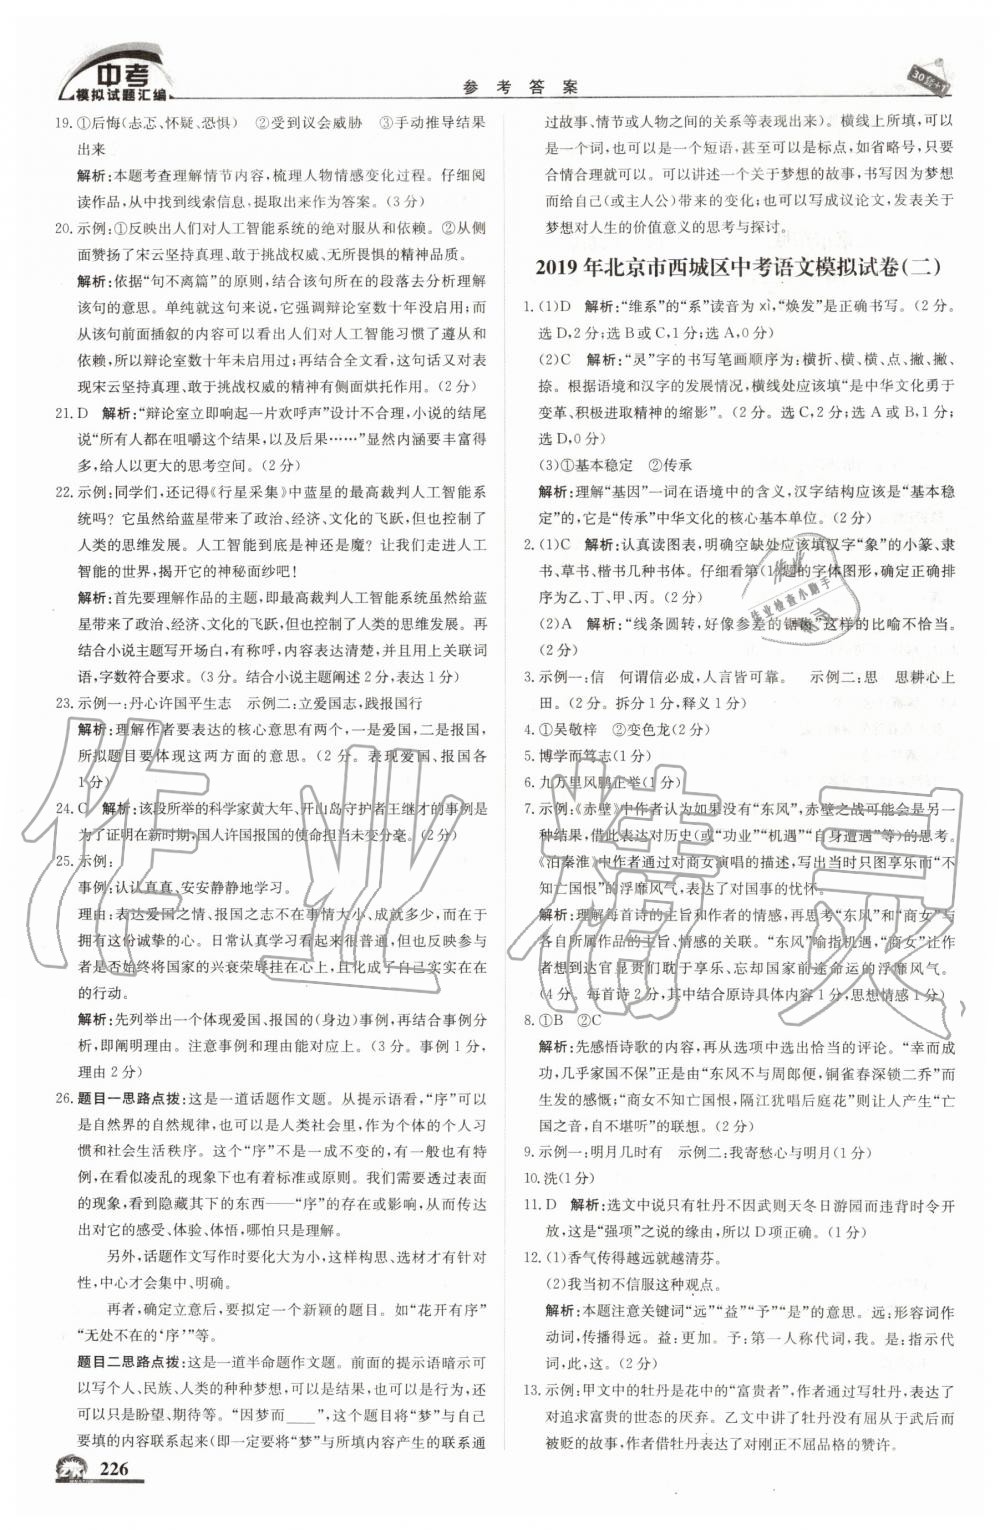 中考
模拟试题汇编
参考答案
19. ①后悔(忐忑、怀疑、恐惧)　②受到议会威胁　③手动推导结果
出来
解析:本题考查理解情节内容,梳理人物情感变化过程。仔细阅
读作品,从中找到线索信息,提取出来作为答案。(3分)
20. 示例:①反映出人们对人工智能系统的绝对服从和依赖。②从侧
面赞扬了宋云坚持真理、敢于挑战权威、无所畏惧的精神。
解析:依据“句不离篇”的原则,结合该句所在的段落去分析理解
该句的意思。单纯就这句来说,它强调辩论室数十年没启用过;
而从该句前面插叙的内容可以看出人们对人工智能习惯了遵从和
依赖,所以辩论室数十年未启用过;再结合全文看,这句话又对表
现宋云坚持真理、敢于挑战权威的精神有侧面烘托作用。(2分)
21. D　解析:“辩论室立即响起一片欢呼声”设计不合理,小说的结尾
说“所有人都在咀嚼这个结果,以及后果……”显然内涵要丰富得
多,给人以更大的思考空间。(2分)
22. 示例:同学们,还记得《行星采集》中蓝星的最高裁判人工智能系
统吗?它虽然给蓝星带来了政治、经济、文化的飞跃,但也控制了
人类的思维发展。人工智能到底是神还是魔?让我们走进人工
智能的世界,揭开它的神秘面纱吧!
解析:首先要理解作品的主题,即最高裁判人工智能系统虽然给蓝
星带来了政治、经济、文化的飞跃,但也控制了人类的思维发展。再
结合小说主题写开场白,有称呼,内容表达清楚,并且用上关联词
语,字数符合要求。(3分。结合小说主题阐述2分,表达1分)
23. 示例一:丹心许国平生志　示例二:立爱国志,践报国行
解析:理解作者要表达的核心意思有两个,一是爱国,二是报国,
所拟题目要体现这两方面的意思。(2分。表现爱国、报国各
1分)
24. C　解析:该段所举的科学家黄大年、开山岛守护者王继才的事例是
为了证明在新时期,国人许国报国的使命担当未变分毫。(2分)
25. 示例:
事例:认认真真、安安静静地学习。
理由:表达爱国之情、报国之志不在事情大小、成就多少,而在于
拥有这份诚挚的心。日常认真学习看起来简单,但也反映参与
者是否始终将国家的兴衰荣辱挂在心上,且化成了自己实实在在
的行动。
解析:先列举出一个体现爱国、报国的(身边)事例,再进行事例分
析,即阐明理由。注意事例和理由的一致性。(3分。事例1分,
理由2分)
26. 题目一思路点拨:这是一道话题作文题。从提示语看,“序”可以
是自然界的自然规律,也可以是人类社会,作为个体的个人习
惯和社会生活秩序。有些“序”不是一成不变的,有一般也有特
例,在看似凌乱的现象下也有着标准或原则。我们要透过现象
的表象,看到隐藏其下的东西——“序”的存在或影响,从而传达
出对它的感受、体验、体悟,哪怕只是理解。
另外,话题作文写作时要化大为小,这样构思、选材才有针对
性,中心才会集中、明确。
再者,确定立意后,要拟定一个新颖的题目。如“花开有序”
“无处不在的‘序’”等。
题目二思路点拨:这是一道半命题作文题。前面的提示语暗示可
以写个人、民族、人类的种种梦想,可以是结果,也可以没有结果,
可以只是盼望、期待等。“因梦而____”,这个题目将“梦”与自己
要填的内容联系起来(即一定要将“梦”与所填内容产生的联系通
226
过故事、情节或人物之间的关系等表现出来)。横线上所填,可以
是一个词,也可以是一个短语,甚至可以是标点,如省略号,只要
合情合理就可以。可以讲述一个关于梦想的故事,书写因为梦想
而给自己(或主人公)带来的变化;也可以写成议论文,发表关于
梦想对人生的价值意义的思考与探讨。
2019年北京市西城区中考语文模拟试卷(二)
1. (1)D　解析:“维系”的“系”读音为xì,“焕发”是正确书写。(2分。
选D,2分;选B或C,1分;选A,0分)
(2)C　解析:“灵”字的书写笔画顺序为:横折、横、横、点、撇、撇、
捺。根据语境和汉字的发展情况,横线处应该填“是中华文化勇于
变革、积极进取精神的缩影”。(2分。选C,2分;选A或B,1分;
选D,0分)
(3)①基本稳定　②传承
解析:理解“基因”一词在语境中的含义,汉字结构应该是“基本稳
定”的,它是“传承”中华文化的核心基本单位。(2分)
2. (1)C　解析:认真读图表,明确空缺处应该填汉字“象”的小篆、隶
书、草书、楷书几种书体。仔细看第(1)题的字体图形,正确排
序为乙、丁、甲、丙。(2分)
(2)A　解析:“线条圆转,好像参差的锯齿”这样的比喻不恰当。
(2分)
3. 示例一:信　何谓信必成,人言皆可靠。　示例二:思　思耕心上
田。(2分。选择拆分1分,释义1分)
4. ①吴敬梓　②变色龙(2分)
5. 博学而笃志(1分)
6. 九万里风鹏正举(1分)
7. 示例:《赤壁》中作者认为如果没有“东风”,赤壁之战可能会是另一
种结果,借此表达对历史(或“功业”“机遇”“自身遭遇”等)的思考。
《泊秦淮》中作者通过对商女演唱的描述,写出当时只图享乐而“不
知亡国恨”的浮靡风气,表达了对国事的忧怀。
解析:理解每首诗的主旨和作者的情感,再思考“东风”和“商女”与
各自所属作品的主旨、情感的关联。“东风”喻指机遇,“商女”让作者
想到达官显贵们耽于享乐、忘却国家前途命运的浮靡风气。
(4分。每首诗2分,其中结合原诗具体内容1分,思想情感1分)
8. ①B　②C
解析:先感悟诗歌的内容,再从中选出恰当的评论。“幸而成
功,几乎家国不保”正是由“东风不与周郎便,铜雀春深锁二乔”而发
生的感慨;“商女不知亡国恨,隔江犹唱后庭花”则让人产生“亡
国之音,自不堪听”的联想。(2分)
9. 示例一:明月几时有　示例二:我寄愁心与明月(1分)
10. 洗(1分)
11. D　解析:选文中说只有牡丹不因武则天冬日游园而违背时令开
放,这是“强项”之说的缘由,所以D项正确。(1分)
12. (1)香气传得越远就越清芬。
(2)我当初不信服这种观点。
解析:本题注意关键词“远”“益”“予”“是”的意思。远:形容词作
动词,传播得远。益:更加。予:第一人称代词,我。是:指示代
词,此,这。(2分)
13. 示例:甲文中的牡丹是花中的“富贵者”,作者通过写牡丹,表达了
对追求富贵的世态的厌弃。乙文中说牡丹没有屈从于武后而
被贬的故事,作者借此表达了对刚正不阿品格的赞许。